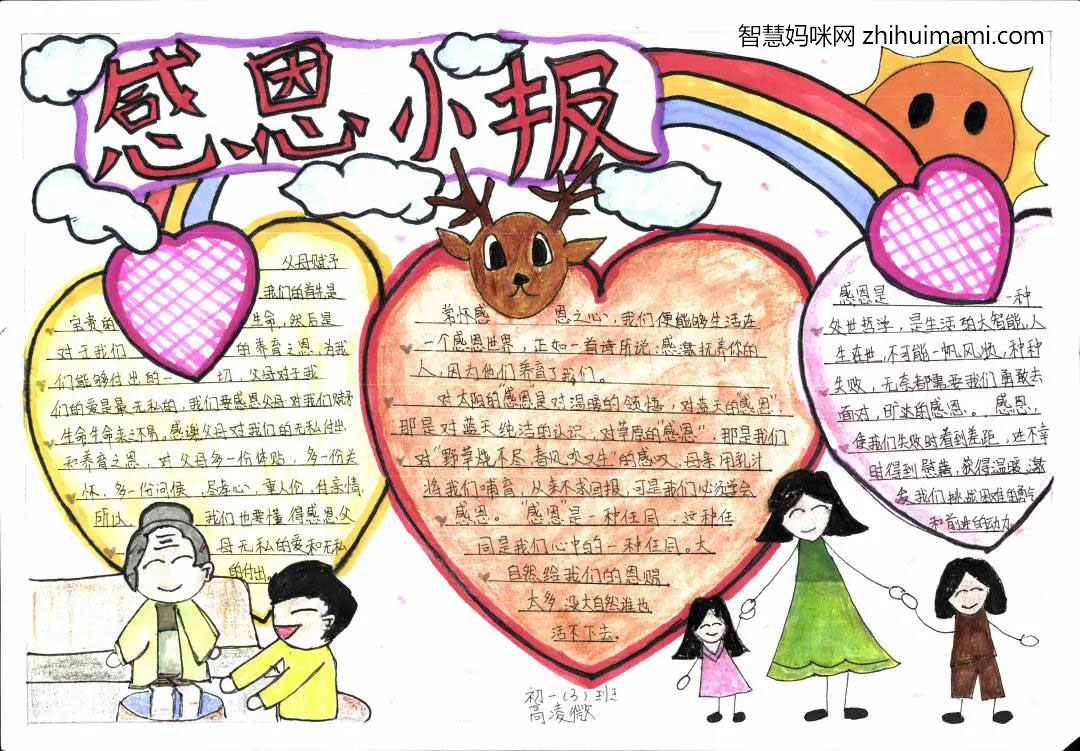 智慧妈咪网 zhihuimami.com
感恩小报
父母赋予
我们的首先是
宝贵的 生命,然后是
对于我们 的养育之恩,为我
们能够付出的一 切,父母对于我
们的爱是最无私的,我们要感恩父母对我们赋予
生命生命来之不易。感谢父母对我们的无私付出
和养育之恩,对父母多一份体贴,多一份关
怀,多一份问候,尽孝心,重人伦,付亲情,
所以, 我们也要懂得感恩父
母无私的爱和无私
的付出。
常怀感 恩之心,我们便能够生活在
一个感恩世界,正如一首诗所说:感激抚养你的
人,因为他们养育了我们。
对太阳的"感恩"是对温暖的领悟,对蓝天的"感恩"
那是对蓝天纯洁的认识,对草原的感恩",那是我们
对"野草烧不尽,春风吹又生"的感叹,母亲用乳汁
将我们哺育,从来不求回报,可是我们必须学会
感恩。"感恩"是一种任同,这种任
同是我们心中的一种任同。大
自然给我们的恩赐
太多,没大自然谁也
活不下去。
感恩是 一种
处世哲学,是生活的大智能,人
生在世,不可能一帆风顺,种种
失败,无奈都需要我们勇敢去
面对,旷达的感恩。感恩,
使我们失败时看到差距,在不幸
时得到慰藉,获得温暖,激
发我们挑战困难的勇气
和前进的动力
初一(3)班
高凌微